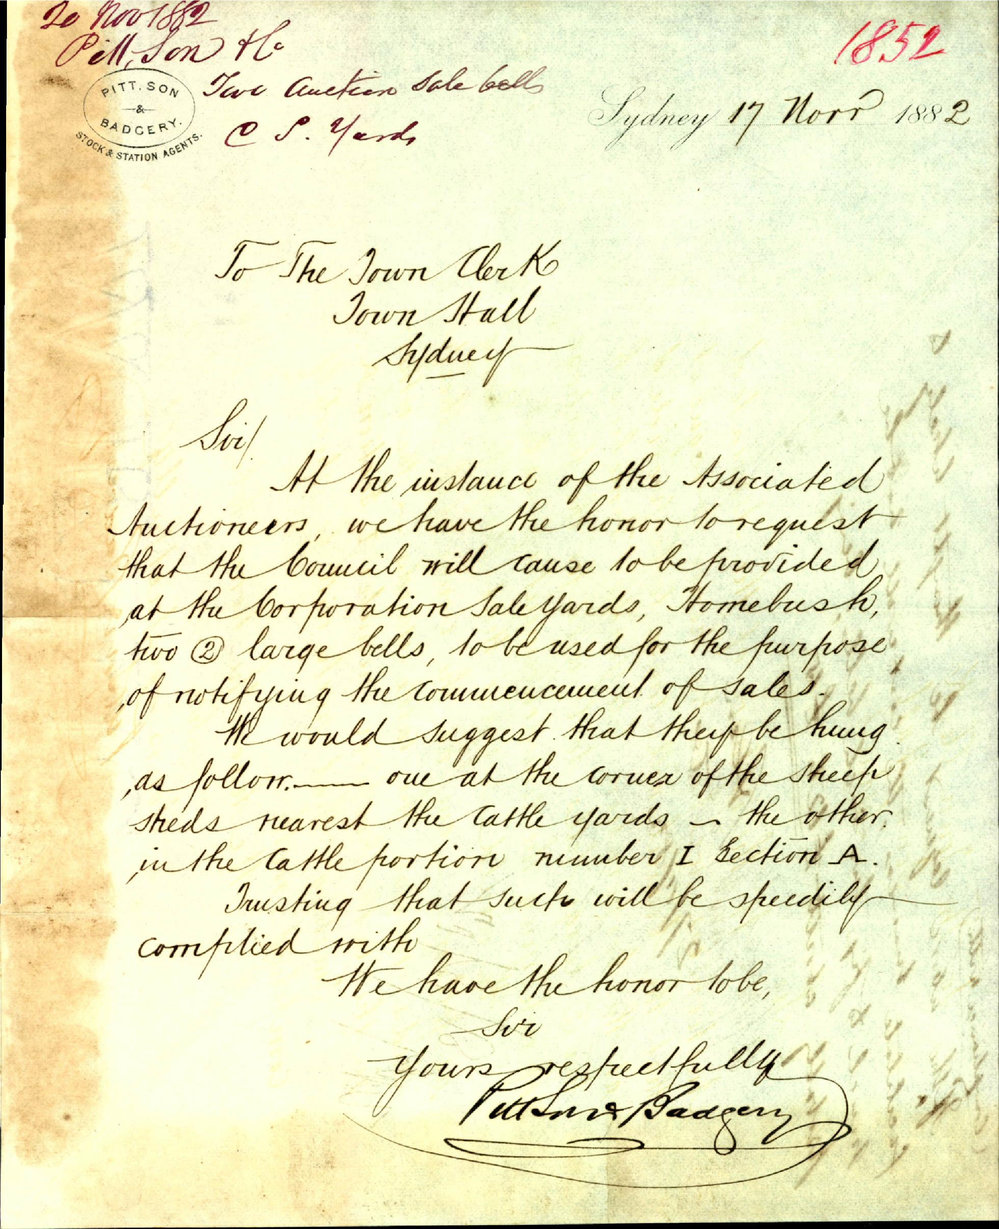 20 Nov 1882
Pitt, Son & Co
Two Auction Sale bells
C S. Yards
1852
PITT. SON
&
BADGERY.
STOCK & STATION AGENTS.
Sydney 17 Novr 1882
To The Town Clerk
Town Hall
Sydney
Sir/
At the instance of the Associated
Auctioneers, we have the honor to request
that the Council will cause to be provided
at the Corporation Sale Yards, Homebush,
two (2) large bells, to be used for the purpose
of notifying the commencement of sales.
We would suggest that they be hung
as follow. — one at the corner of the sheep
sheds nearest the Cattle yards — the other
in the Cattle portion number I Section A.
Trusting that such will be speedily
complied with
We have the honor to be,
Sir
Yours respectfully
Pitt Son & Badgery